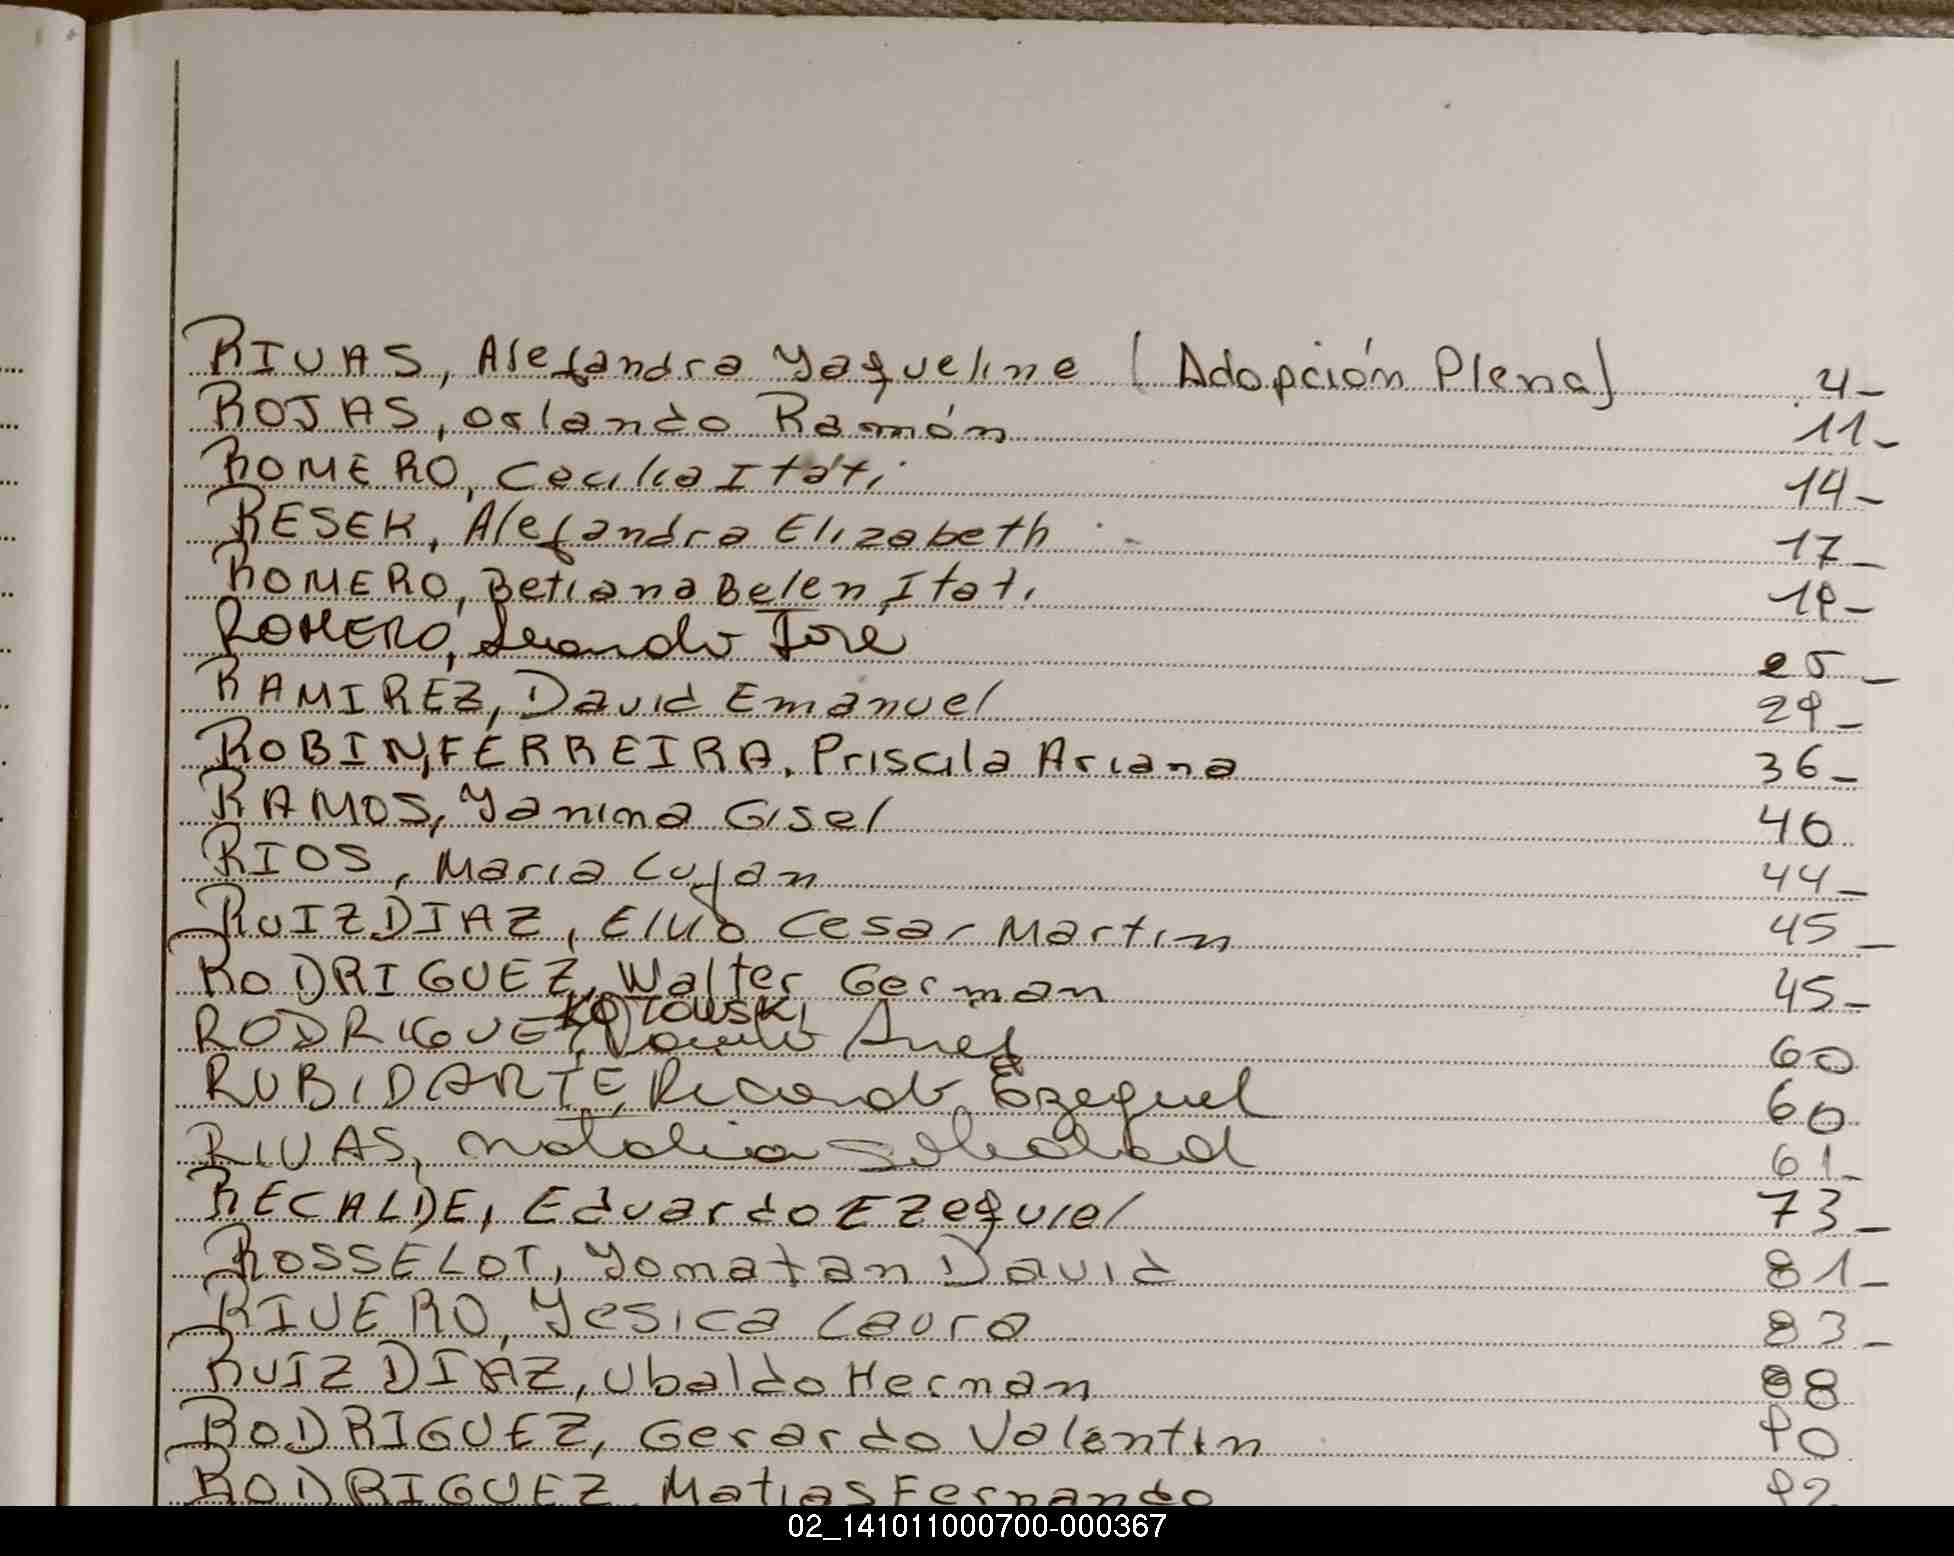 RIVAS, Alejandra Yaqueline (Adopción Plena) 4-
ROJAS, Orlando Ramón 11-
ROMERO, Cecilia Itatí 14-
RESEK, Alejandra Elizabeth 17-
ROMERO, Betiana Belen Itati 19-
ROMERO, Leandro José 25-
RAMIREZ, David Emanuel 29-
ROBIN, FERREIRA, Priscila Ariana 36-
RAMOS, Yanina Gisel 40
RIOS, Maria Lujan 44-
RUIZ DIAZ, Elvio Cesar Martin 45-
RODRIGUEZ, Walter German 45-
KOTOWSKI
RODRIGUEZ, 60
RUBIDARTE, Ricardo Ezequiel 60
RIVAS, Natalia Soledad 61-
RECALDE, Eduardo Ezequiel 73-
ROSSELOT, Yonatan David 81-
RIVERO, Yesica Laura 83-
RUIZ DIAZ, Ubaldo Hernan 88
RODRIGUEZ, Gerardo Valentin 90
RODRIGUEZ, Matias Fernando 92
02_141011000700-000367